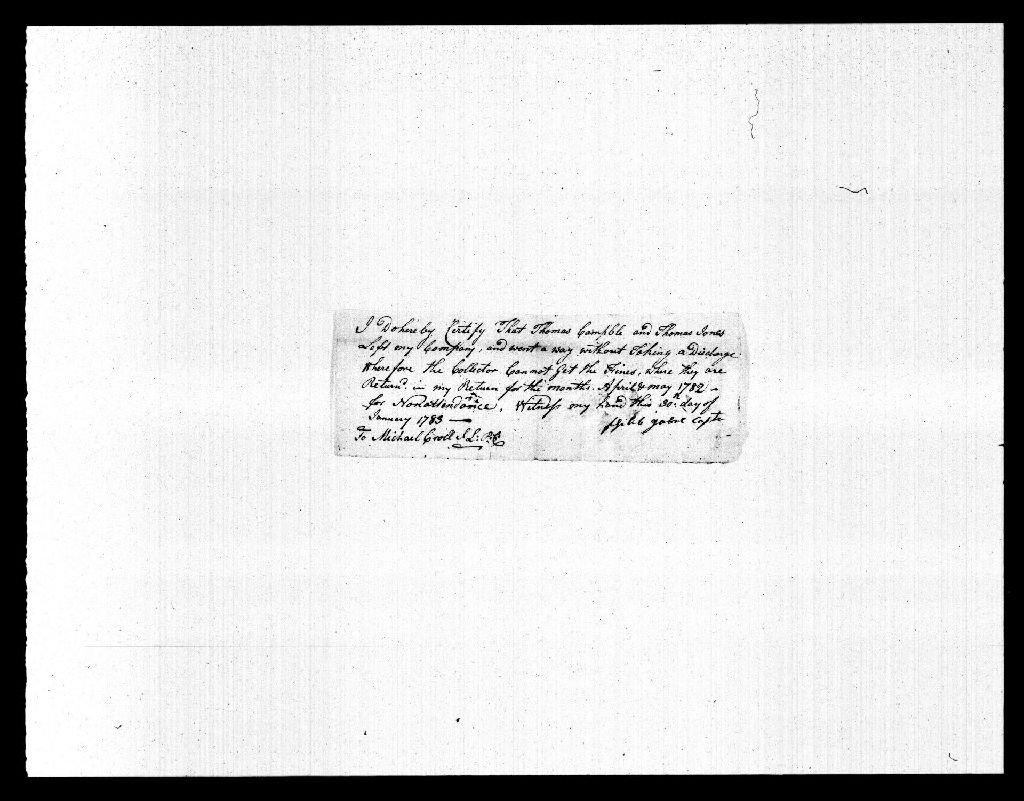 I Do hereby Certify That Thomas Campble and Thomas Jones
Left my Company, and went a way without Taking a Discharge
Wherefore the Collector Cannot Get the Fines, where they are
Return'd in my Return for the months April & may 1782 -
for Nonattendance, Witness my hand this 30th day of
January 1783
Capt
To Michael Croll S L: